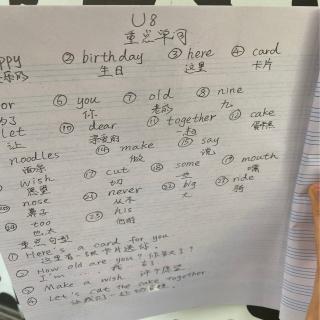 U8
重点单词
ppy ② birthday ③ here ④ card
生日 这里 卡片
or ⑥ you ⑦ old ⑧ nine
你 老的 九
let ⑩ dear ⑪ together ⑫ cake
让 亲爱的 一起 蛋糕
noodles ⑭ make ⑮ say
面条 做 说
wish ⑰ cut ⑱ some ⑲ mouth
愿望 切 一些 嘴
nose ㉑ never ㉒ big ride
鼻子 从不 大 骑
too ㉕ his
也,太 他的
重点句型
① Here's a card for you
这里有一张卡片送你.
② How old are you? 你几岁了?
I'm ... 我 岁了
③ Make a wish 许个愿望
④ Let's eat the cake together
让我们一起切蛋糕.